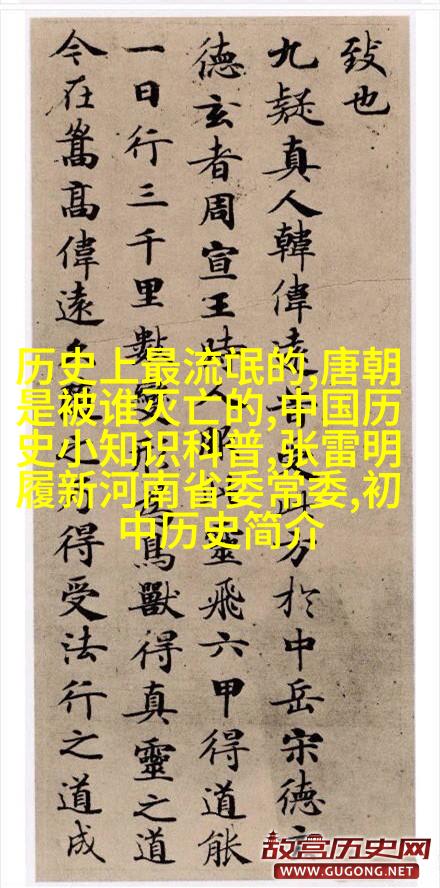 致也
九疑真人韓偉遠昔受此方於中岳宋德玄
德玄者周宣王時人服此靈飛六甲得道能
一日行三千里數變形為鳥獸得真靈之道
今在嵩高偉遠之乃得受法行之道成
历史上最流氓的,唐朝
是被谁灭亡的,中国历
史小知识科普,张雷明
履新河南省委常委,初
中历史简介
故宫历史网
WWW.GUGONG.NET